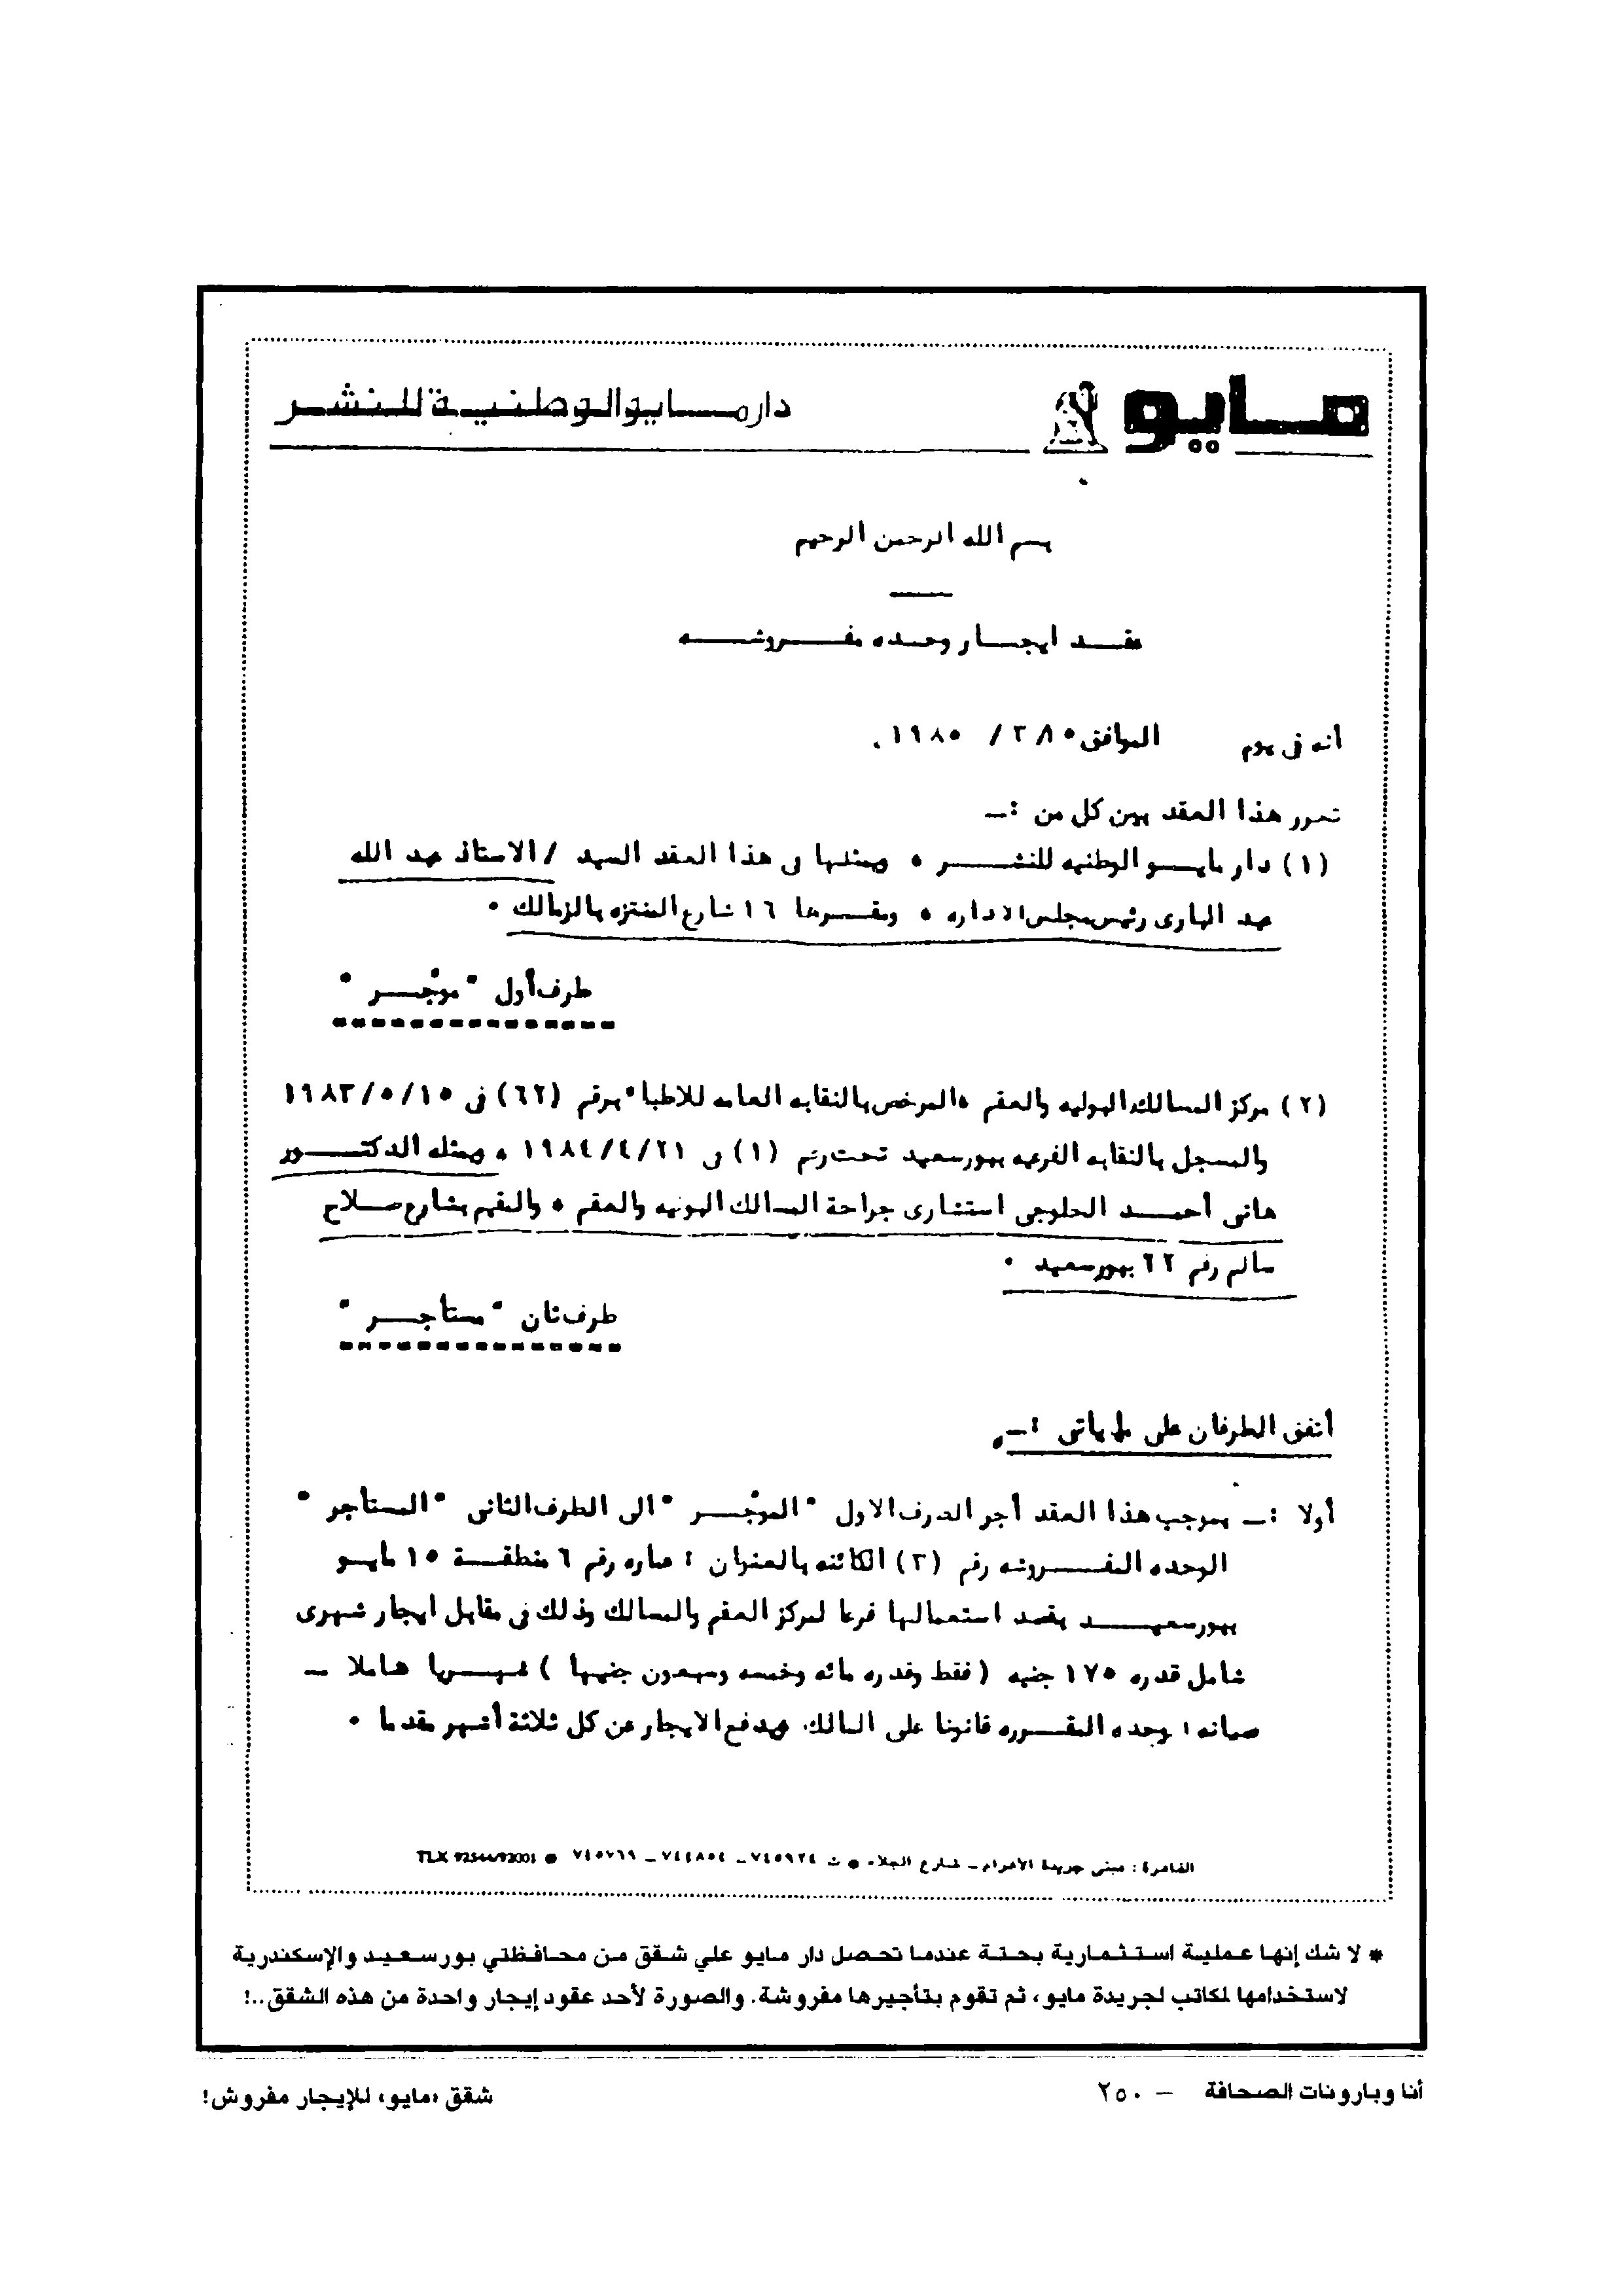 مايو
دار مايو الوطنية للنشر
بسم الله الرحمن الرحيم
عقد ايجار وحده مفروشه
أنه فى يوم الموافق ٣/٨٥ / ١٩٨٥ .
تحرر هذا العقد بين كل من :ـ
(١) دار مايو الوطنيه للنشر ٠ ويمثلها فى هذا العقد السيد / الاستاذ عبد الله
عبد البارى رئيس مجلس الاداره ٠ ومقرها ١٦ شارع المنتزه بالزمالك ٠
طرف أول " مؤجر "
(٢) مركز المسالك البوليه والعقم ٠ المرخص بالنقابه العامه للاطباء برقم (٦٢) فى ١٩٨٣/٥/١٥
والمسجل بالنقابه الفرعيه ببورسعيد تحت رقم (١) فى ١٩٨٤/٤/٢١ ٠ ويمثله الدكتور
هانى أحمد الحلوجى استشارى جراحة المسالك البوليه والعقم ٠ والمقيم بشارع صلاح
سالم رقم ٦٢ ببورسعيد ٠
طرف ثان " مستأجر "
أتفق الطرفان على ما يأتى :ـ
أولا :ـ بموجب هذا العقد أجر الطرف الاول " المؤجر " الى الطرف الثانى " المستأجر "
الوحده المفروشه رقم (٢) الكائنه بالعنوان : عماره رقم ٦ منطقة ١٥ مايو
ببورسعيد بقصد استعمالها فرعا لمركز العقم والمسالك وذلك فى مقابل ايجار شهرى
شامل قدره ١٧٥ جنيه ( فقط وقدره مائه وخمسه وسبعون جنيها ) شهريا شاملا ـ
صيانه الوحده المقرره قانونا على المالك ويدفع الايجار عن كل ثلاثة أشهر مقدما ٠
القاهرة : مبنى جريدة الأهرام ـ شارع الجلاء ● ت ٧٤٥٩٢٤ ـ ٧٤٤٨٥٤ ـ ٧٤٥٧٦٩ ● TLX 92544/92001
* لا شك إنها عملية استثمارية بحتة عندما تحصل دار مايو علي شقق من محافظتي بورسعيد والإسكندرية
لاستخدامها لمكاتب لجريدة مايو، ثم تقوم بتأجيرها مفروشة. والصورة لأحد عقود إيجار واحدة من هذه الشقق..!
أنا وبارونات الصحافة – ٢٥٠
شقق «مايو» للإيجار مفروش!